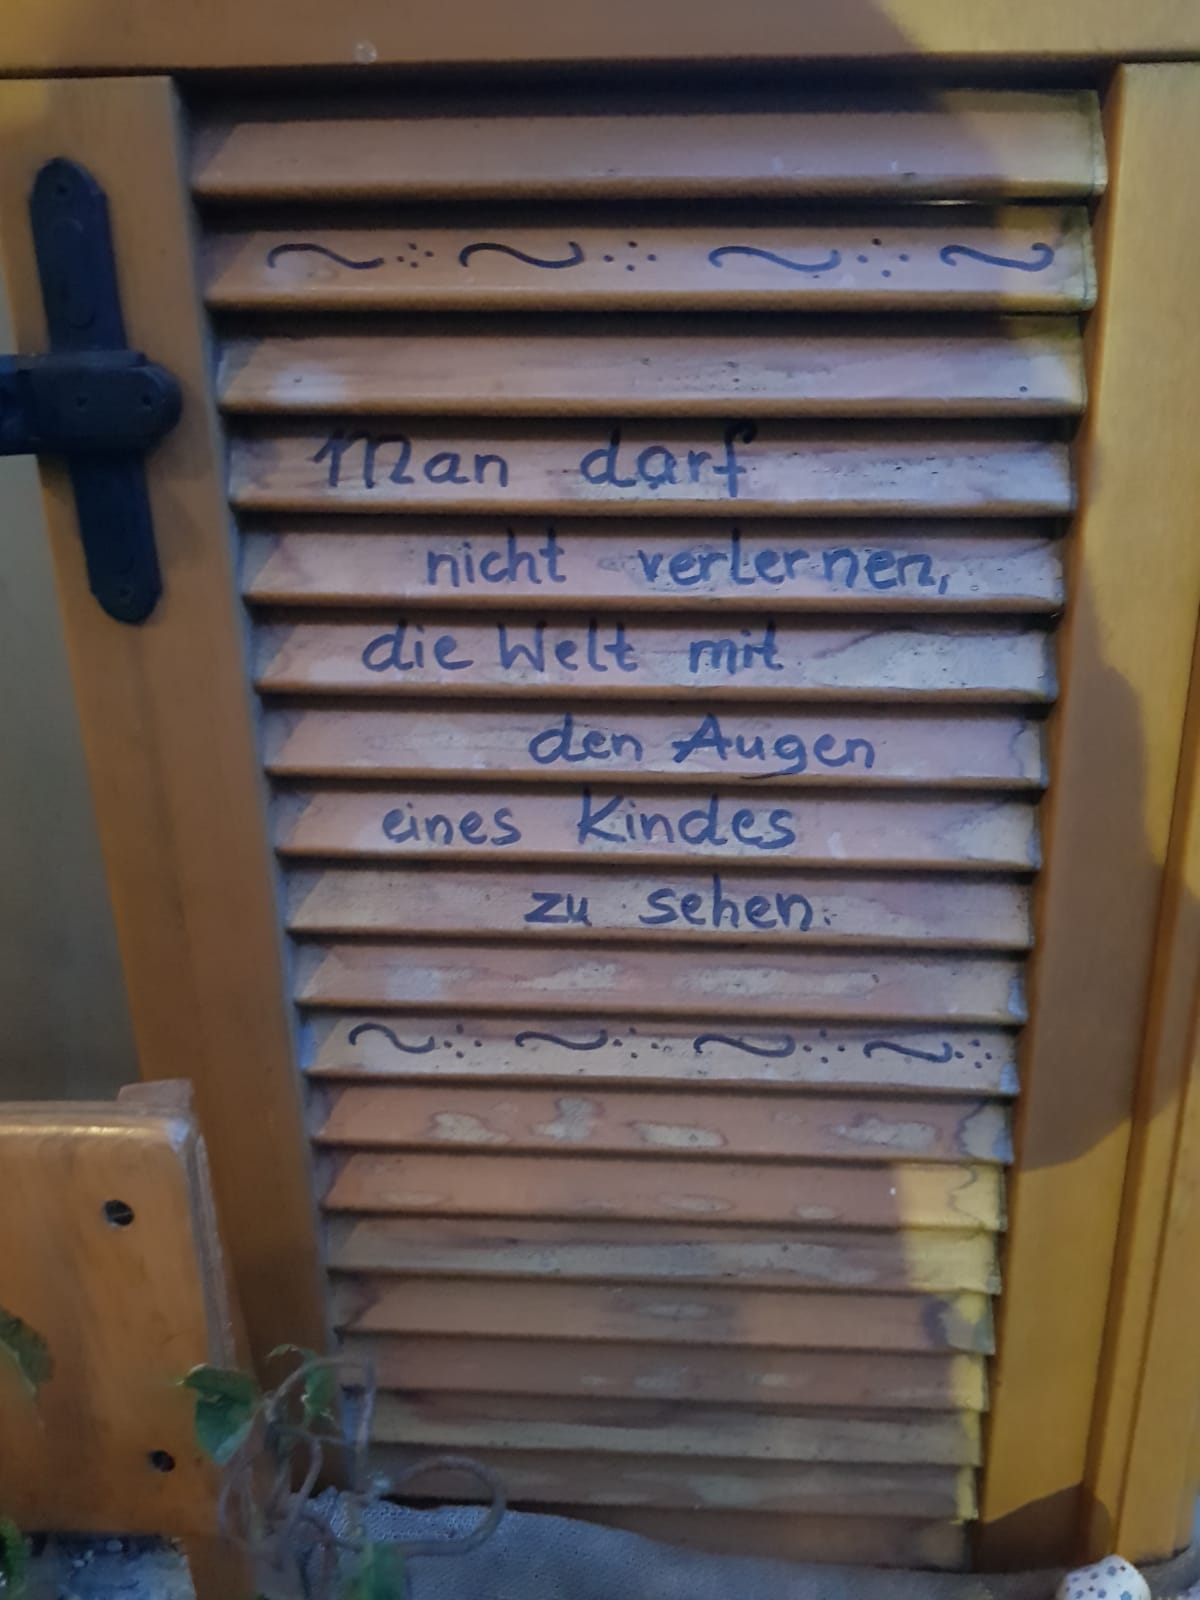 Man darf
nicht verlernen,
die Welt mit
den Augen
eines Kindes
zu sehen.